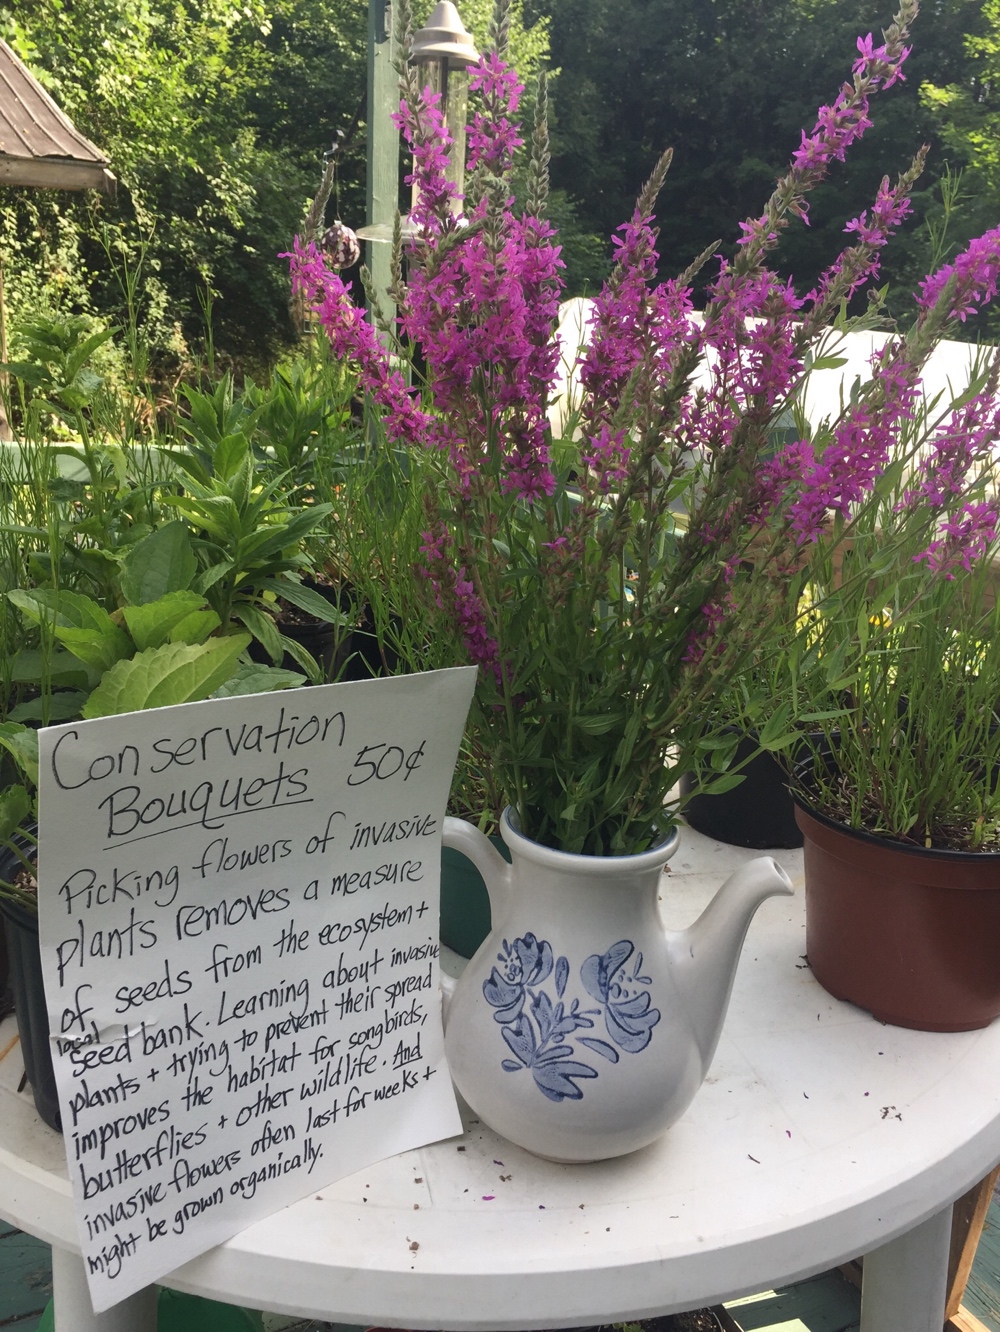 Conservation
Bouquets 50¢
Picking flowers of invasive
plants removes a measure
of seeds from the ecosystem +
local
seed bank. Learning about invasive
plants + trying to prevent their spread
improves the habitat for songbirds,
butterflies + other wildlife. And
invasive flowers often last for weeks +
might be grown organically.